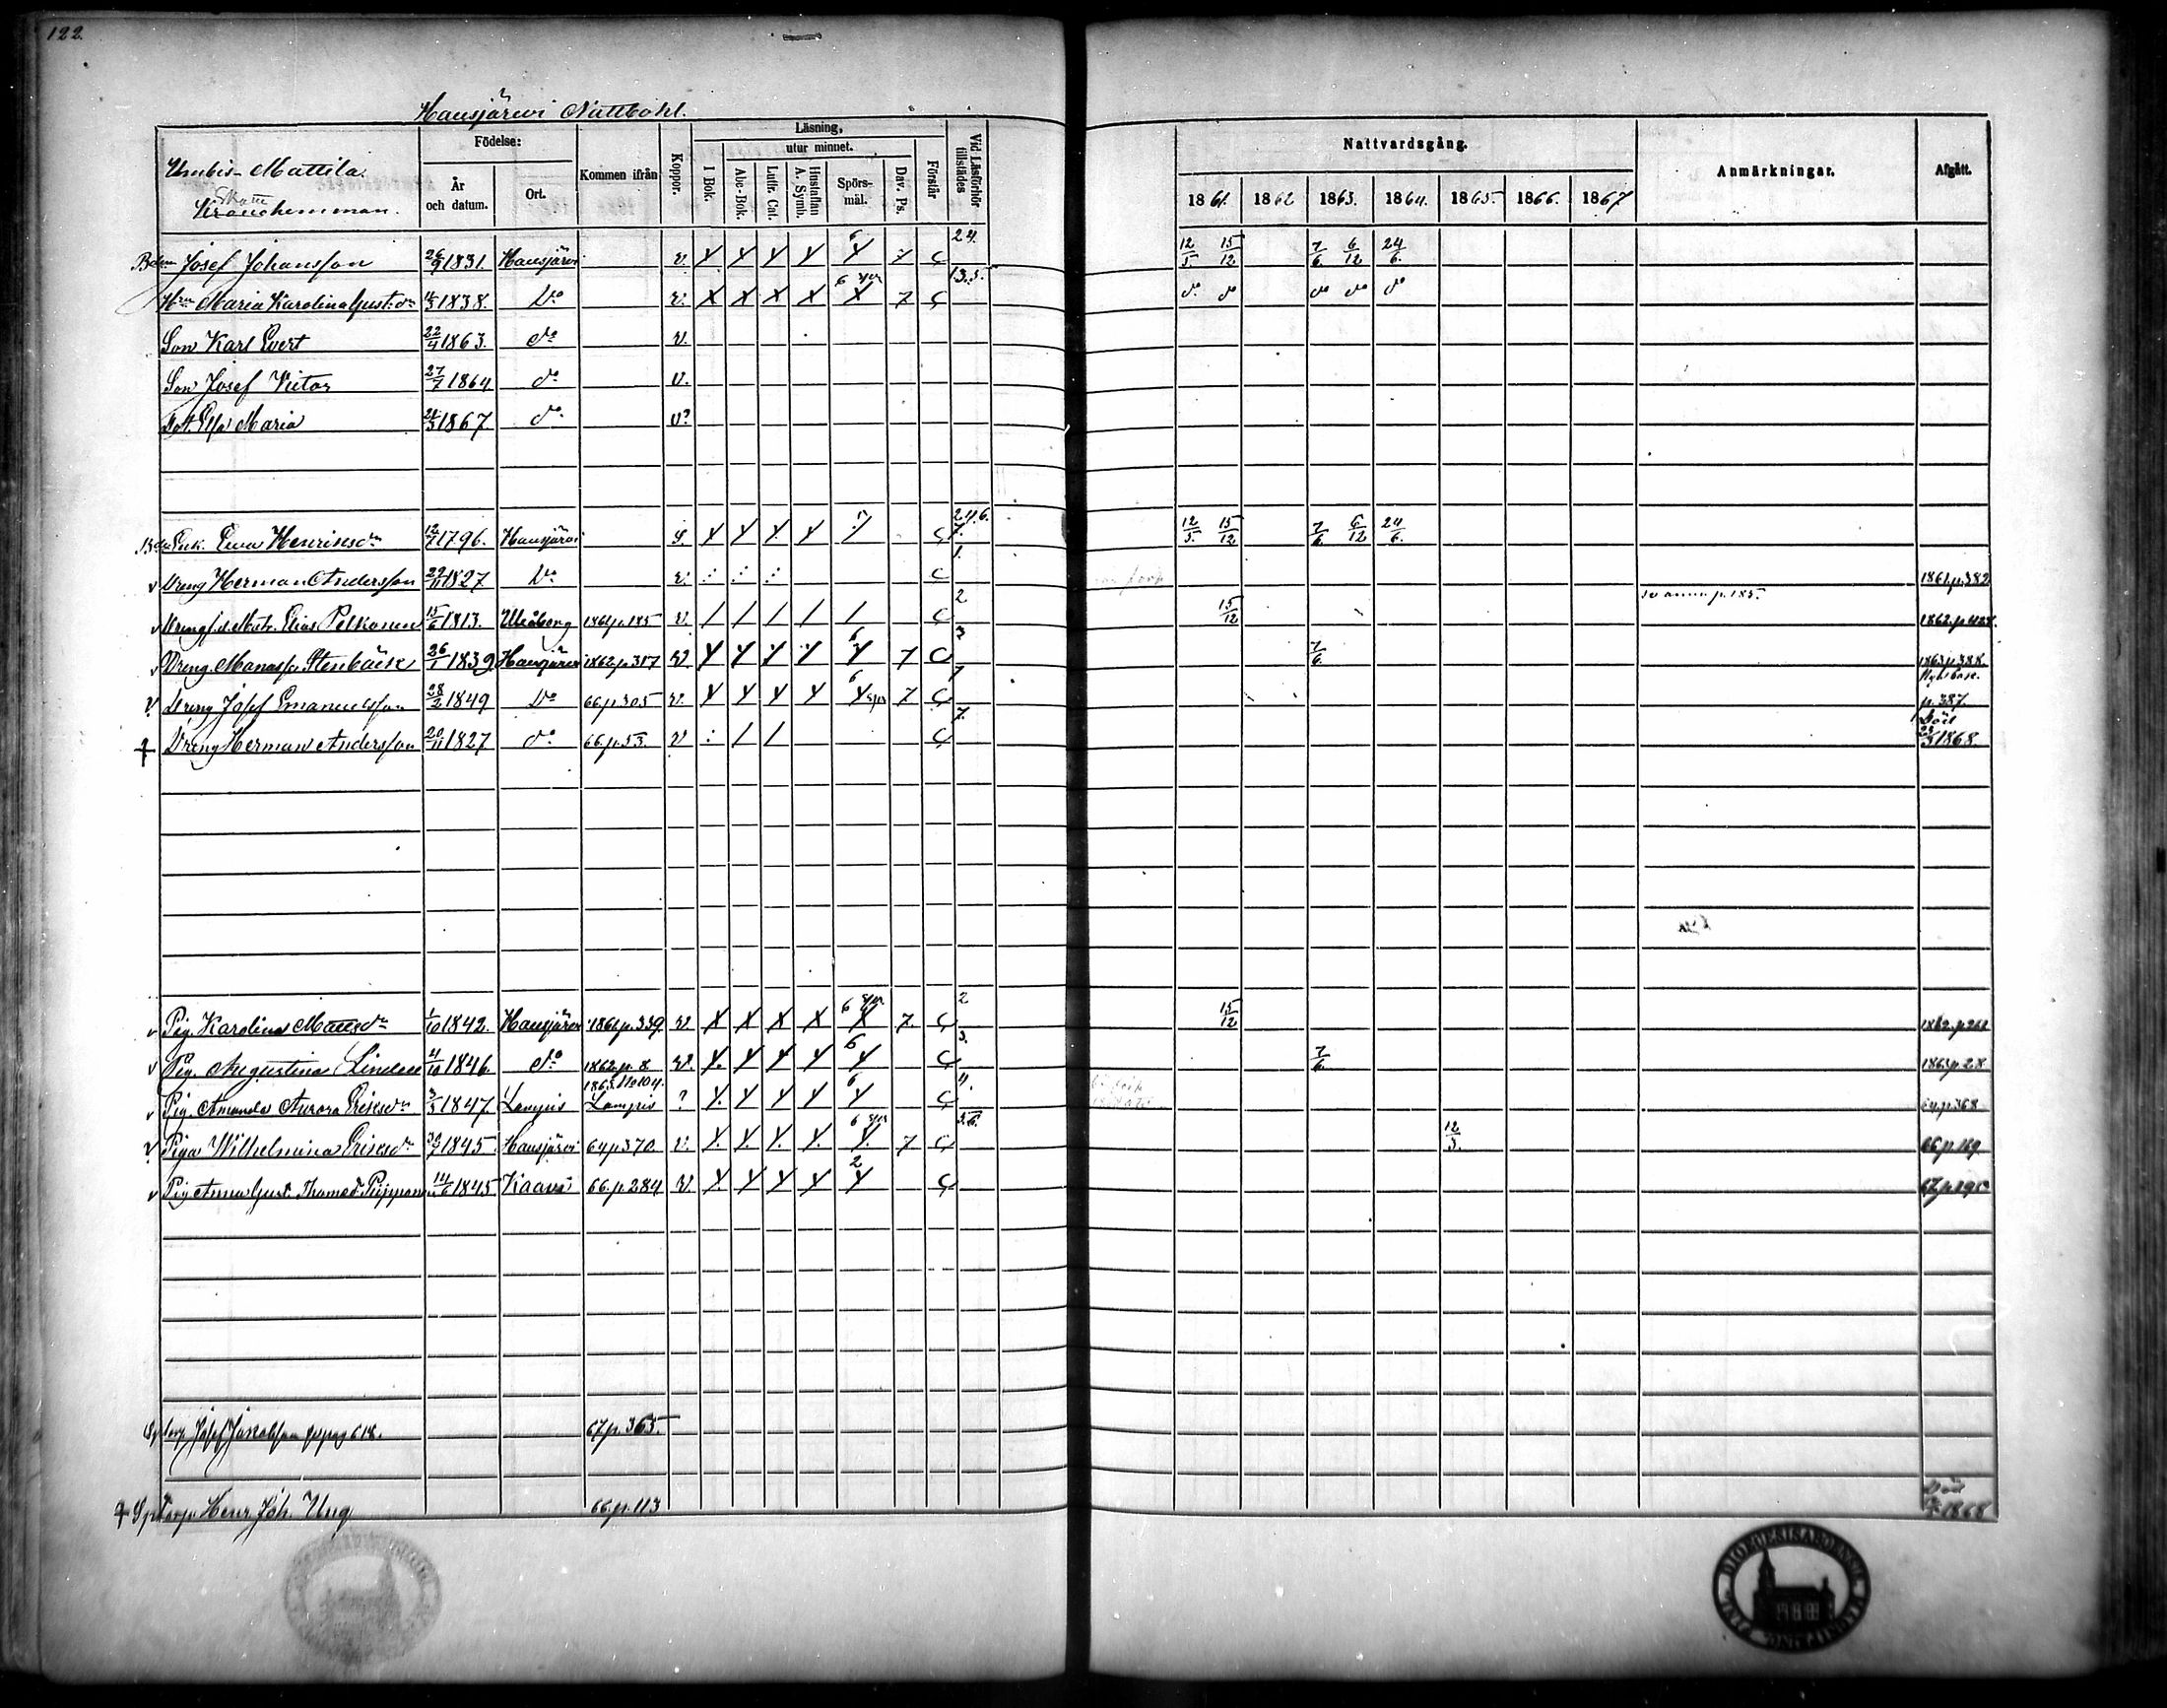 122.
Hausjärwi Nattbohl.
Umbis-Mattila.
Skatte
Kronohemman.
Födelse:
År och datum.
Ort.
Kommen ifrån
Koppor.
Läsning,
utur minnet.
I Bok.
Abc-Bok.
Luthr. Cat.
Hustaflan A. Symb.
Spörsmål.
Dav. Ps.
Förstår
Vid Läsförhör tillstädes
Nattvardsgång.
1861. 1862 1863. 1864. 1865. 1866. 1867
Anmärkningar.
Afgått.
Josef Johansson 26/9 1831. Hausjärvi v. 7 24. 12/5. 15/12 7/6. 6/12 24/6.
Maria Karolina Gust.dr 1838. Do v. 6 7 13.5. do do do do do
Son Karl Evert 22/4 1863. do v.
Son Josef Victor 27/7 1864 do v.
Dot. Eva Maria 1867 do v?
Enk. Ewa Henriksdr 12/7 1796. Hausjärvi S. 24.6. 12/5. 15/12 7/6. 6/12 24/6.
v Dreng Herman Andersson 1827 Do v. 1. 1861.p.382
v Elias Pelkonen 15/6 1813. Uleåborg 1861.p.185 v. 2 15/12 se anm. p. 185. 1862.p.428.
v Dreng. Manasse Stenbäck 26/1 1839 Hausjärvi 1862.p.317 v 6 7 3 7/6. 1863.p.388.
v Dreng Josef Emanuelsson 28/2 1849 Do 66.p.305 v. 6 7 p.387.
+ Dreng Herman Andersson 20/11 1827 do 66.p.53. v 7. Död 1868.
v Pig. Karolina Mattsdr 1/10 1842. Hausjärvi 1861.p.339 v 6 7. 2 15/12 1862.p.261
v Pig. Augustina Lindell 4/10 1846. do 1862.p.8 v. 6 3. 7/6. 1863.p.28
v Pig. Amanda Aurora Eriksdr 3/5 1847. Lampis 1863. No 104. Lampis ? 6 4. 64.p.368
v Piga Wilhelmina Eriksdr 1845. Hausjärvi 64.p.370. v. 6 7 5.6. 12/3. 66.p.169
v Pig Anna Gust. Thomasd. Pipponen 14/6 1845 Kaavi 66.p.284 v. 2 67.p.190
Josef Jakobsson se pag 618. 67.p.365.
+ Sp.Torp. Henr. Joh. Ung 66.p.113 Död 1868